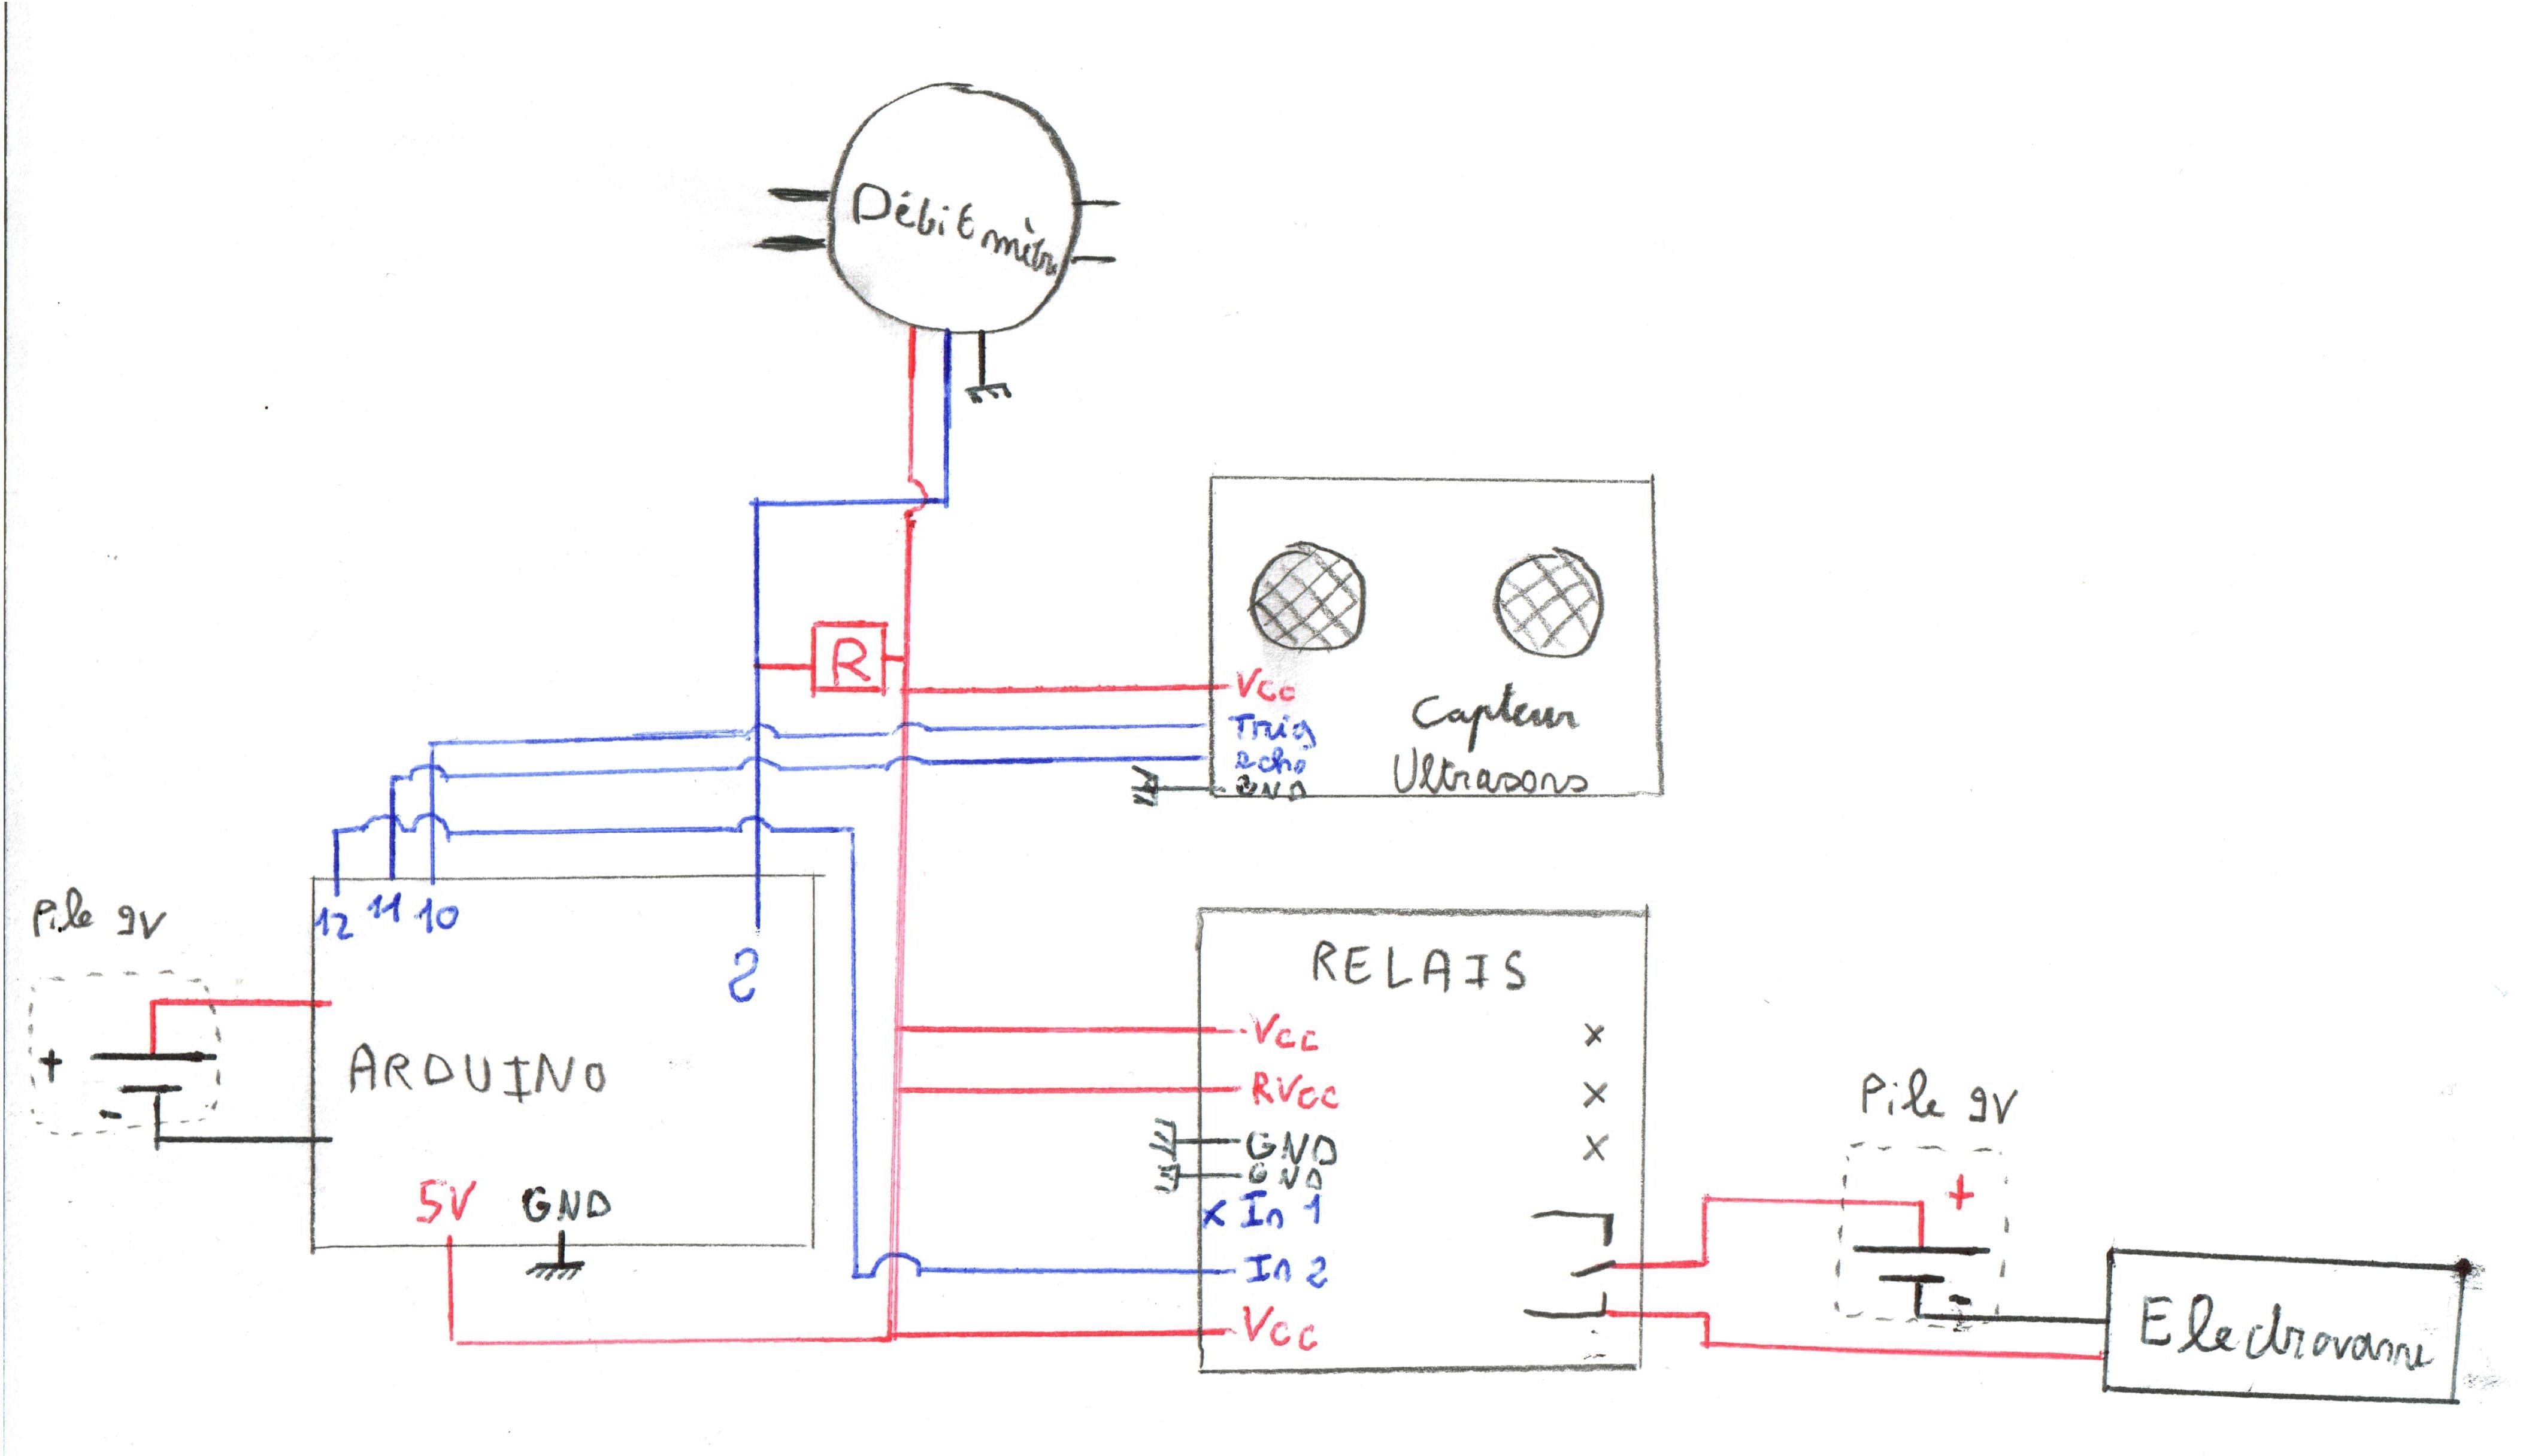 Débitmètre
R
Vcc
Trig
echo
GND
Capteur
Ultrasons
12 11 10
2
Pile 9V
+
-
ARDUINO
5V GND
RELAIS
Vcc
RVcc
GND
GND
x In 1
In 2
Vcc
x
x
x
Pile 9V
+
-
Electrovanne